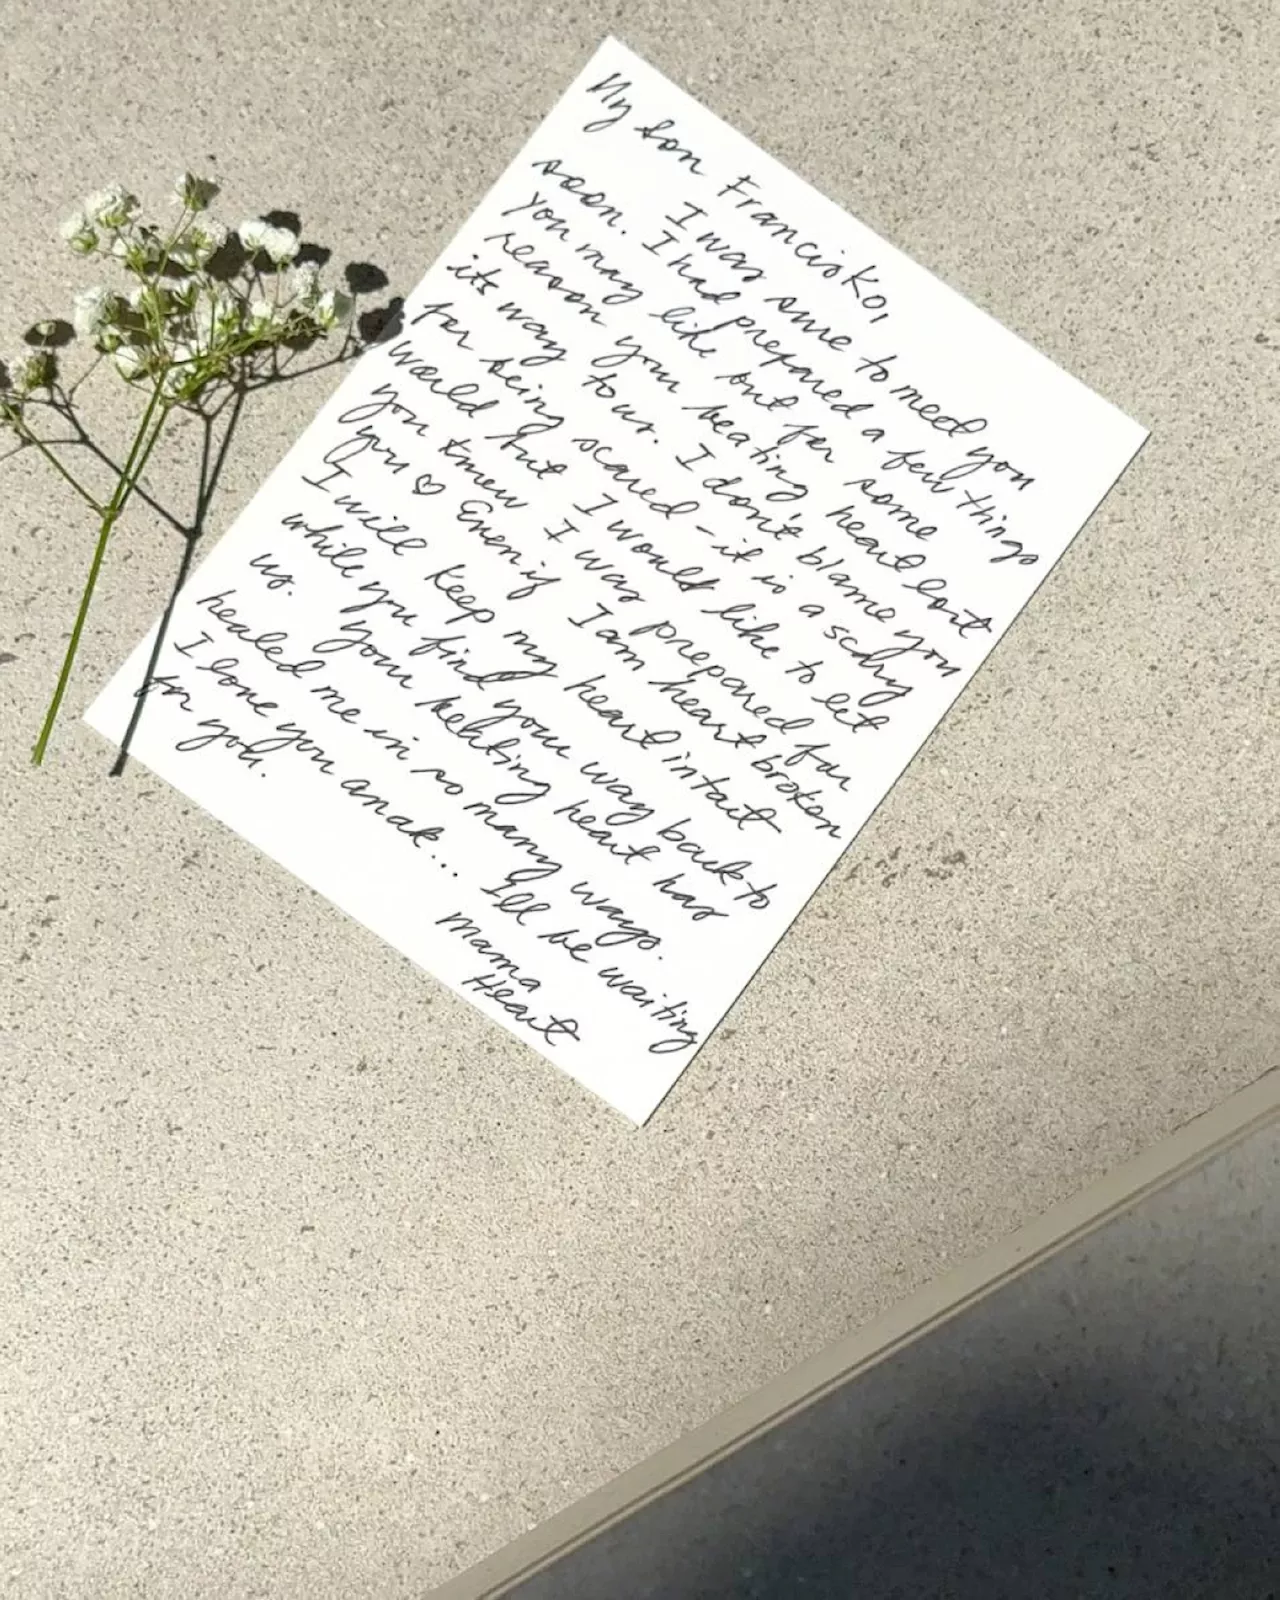 My son Francisko,
I was sure to meet you
soon. I had prepared a few things
you may like but for some
reason your beating heart lost
its way to us. I don't blame you
for being scared - it is a scary
world but I would like to let
you knew I was prepared for
you ♡ Even if I am heart broken
I will keep my heart intact
while you find your way back to
us. Your beating heart has
healed me in so many ways.
I love you anak... I'll be waiting
for you.
Mama
Heart